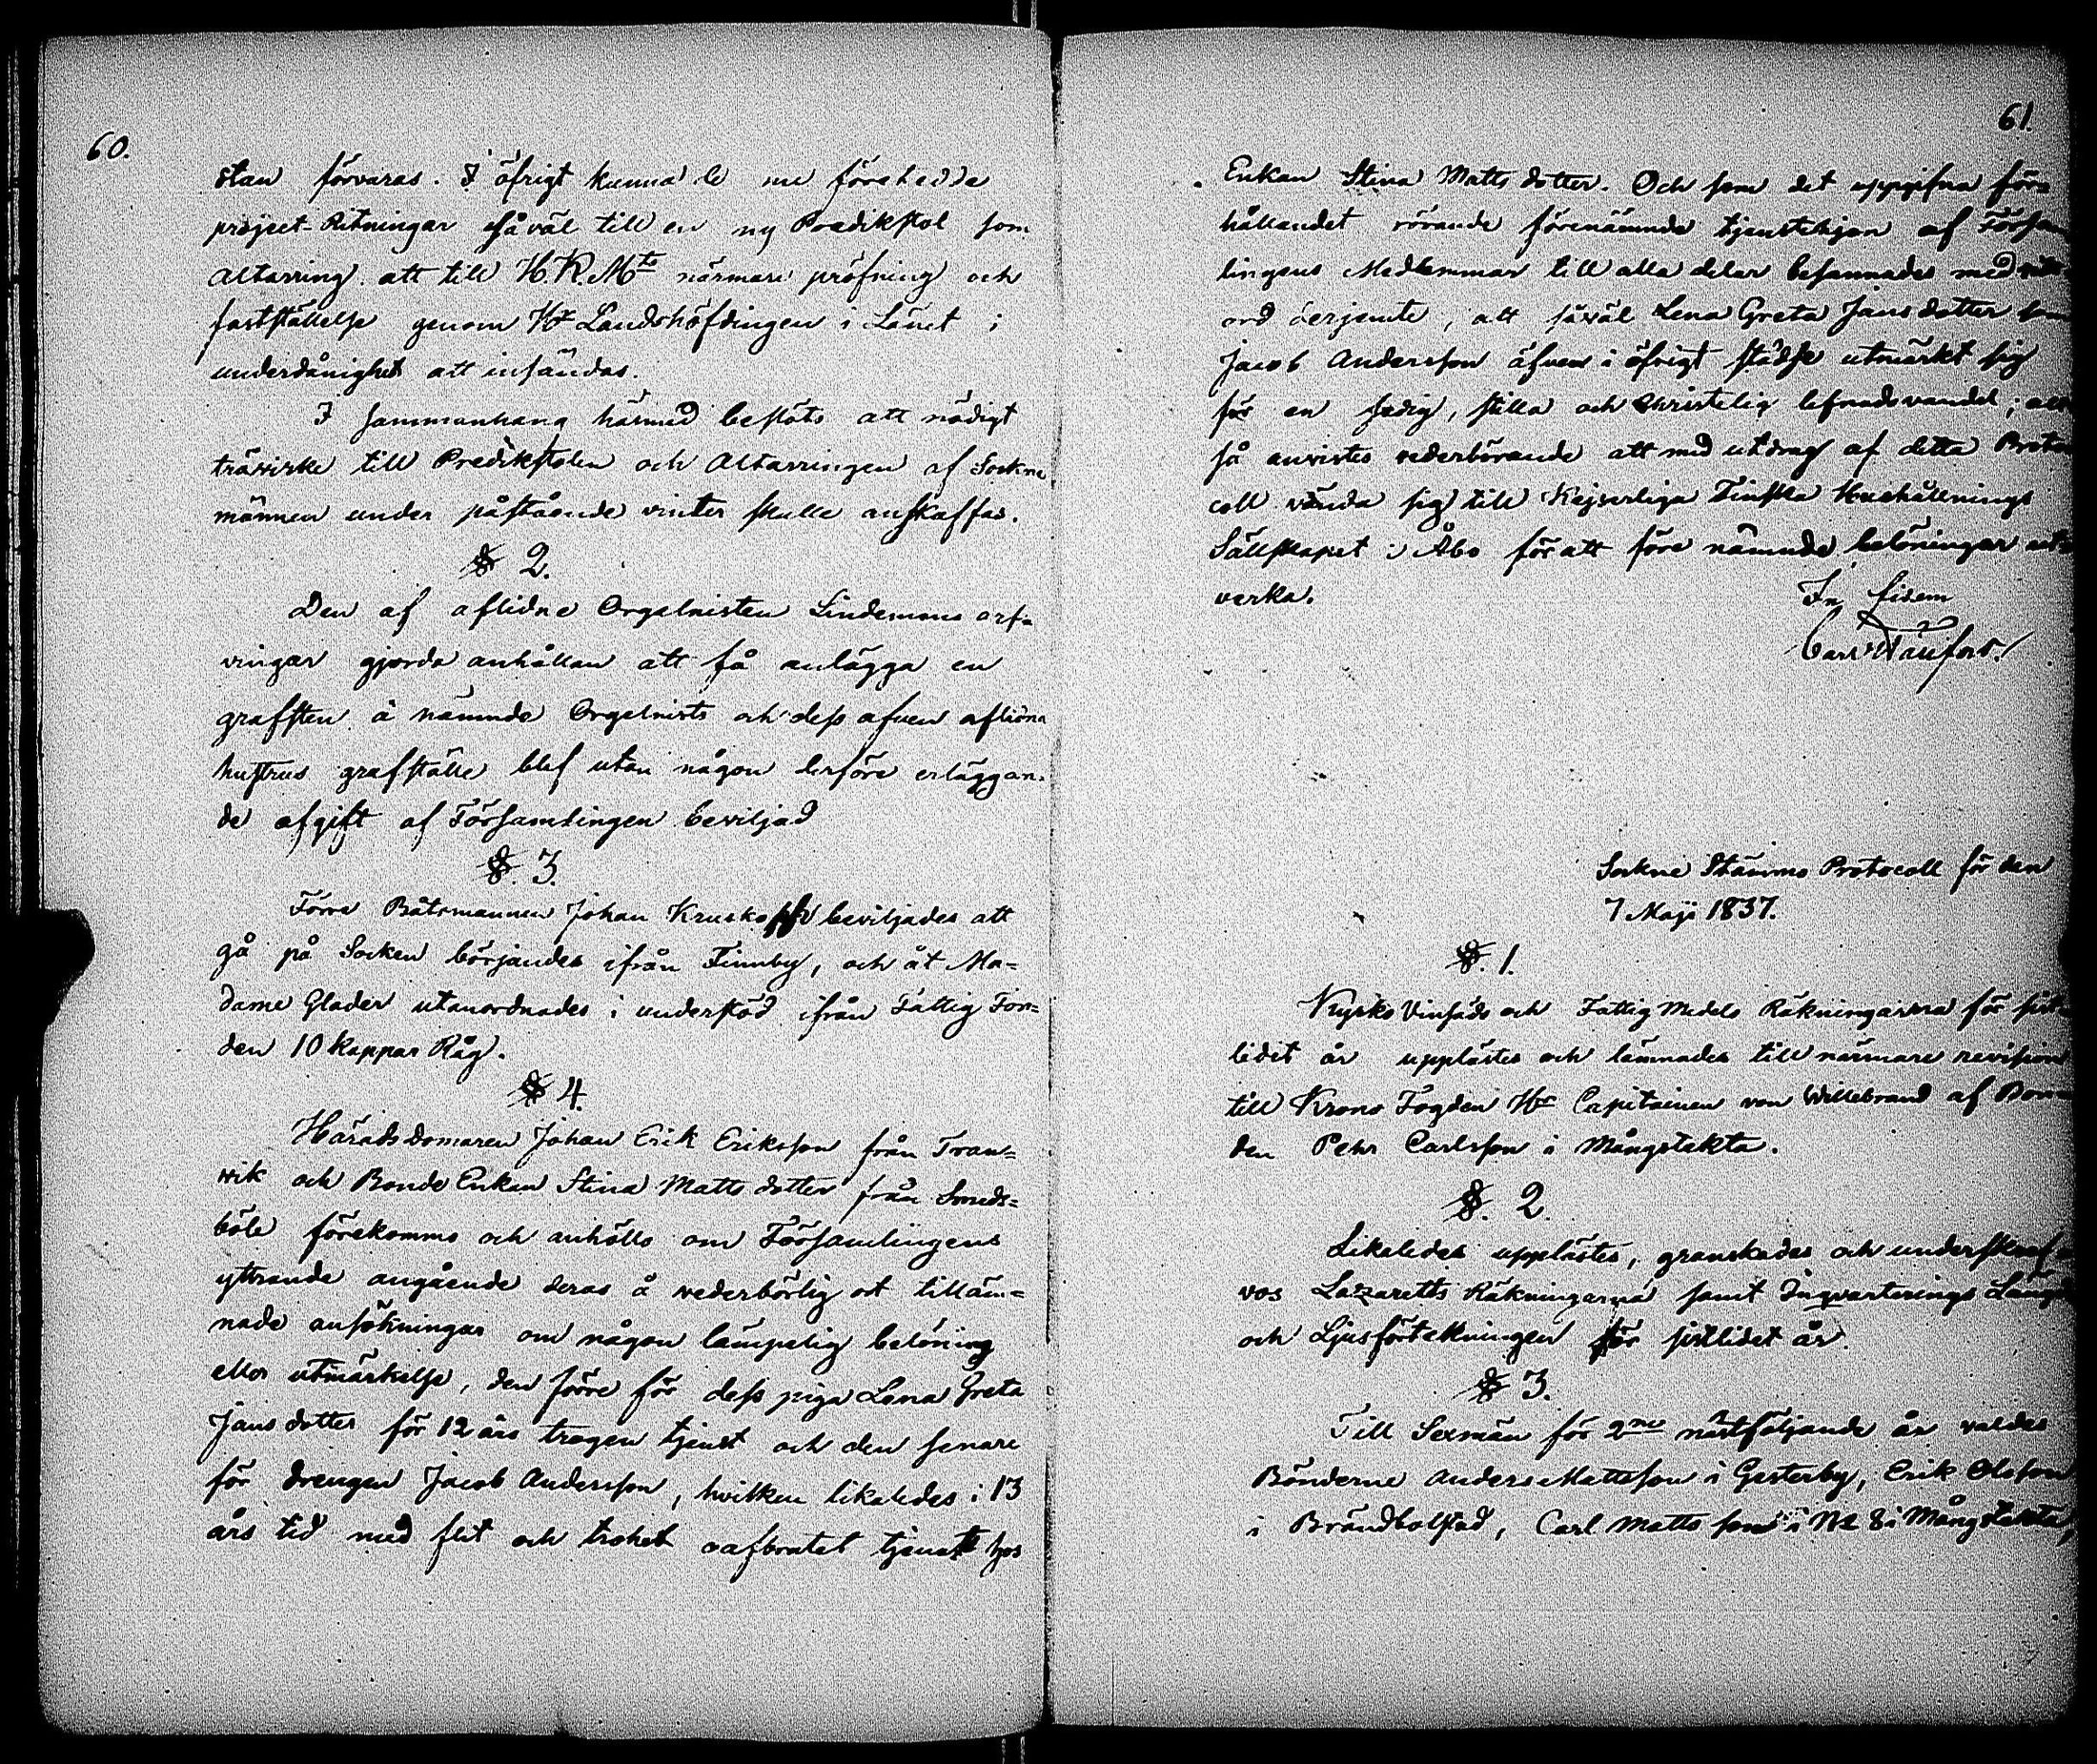 60.
stan förvaras. I öfrigt kunna de nu företedde
project-Ritningar såväl till en ny Predikstol som
Altarring att till H.K.Mts närmare pröfning och
fastställelse genom Hr Landshöfdingen i Länet i
underdånighet att insändas.
I sammanhang härmed beslöts att nödigt
trävirke till Predikstolen och Altarringen af Sockne
männen under påstående vinter skulle anskaffas.
§ 2.
Den af aflidne Orgelnisten Lindemans arf-
vingar gjorda anhållan att få anlägga en
grafsten å nämnde Orgelnists och dess afven aflidna
hustrus grafställe blef utan någon derföre erläggan-
de afgift af Församlingen beviljad
§. 3.
Förre Båtsmannen Johan Kruskopf beviljades att
gå på Socken börjandes ifrån Finnby, och åt Ma-
dame Glader utanordnades i understöd ifrån Fattig Fon-
den 10 kappar Råg.
§ 4.
Häradsdomaren Johan Erik Eriksson från Tran-
wik och Bonde Enkan Stina Matts dotter från Smeds-
böle förekommo och anhöllo om Församlingens
yttrande angående deras å vederbörlig ort tilläm-
nade ansökningar om någon lämpelig belöning
eller utmärkelse, den förre för dess piga Lena Greta
Jans dotter för 12 års trogen tjenst och den senare
för drengen Jacob Andersson, hvilken likaledes i 13
års tid med flit och trohet oafbrutet tjenat hos
61.
Enkan Stina Matts dotter. Och som det uppgifna för-
hållandet rörande förenämnde tjenstehjon af Försam
lingens Medlemmar till alla delar besannades med witts
ord derjemte, att såväl Lena Greta Jans dotter som
Jacob Andersson äfven i öfrigt städse utmärkt sig
för en sedig, stilla och Christelig lefnadsvandel; all
så anvistes vederbörande att med utdrag af detta Proto
coll vända sig till Kejserliga Finska Hushållnings
Sällskapet i Åbo för att före nämnde belöningar ut
verka.
In fidem
Carl
Sockne Stämmo Protocoll för den
7 Maji 1837.
§. 1.
Kyrko Vinsäds och Fattig Medels Räkningarna för sist-
lidet år upplästes och lämnades till närmare revision
till Krono Fogden Hr Capitainen von Willebrand af Bon-
den Pehr Carlsson i Mångstekta.
§. 2.
Likaledes upplästes, granskades och underskref
vos Lazaretts Räkningarna samt Inqvarterings Längd
och Ljusförtekningen för sistlidet år.
§ 3.
Till Sexmän för 2ne nästföljande år valdes
Bönderne Anders Mattsson i Gesterby, Erik Olsson
i Brändbolstad, Carl Matts son i No 8 i Mångstekta,